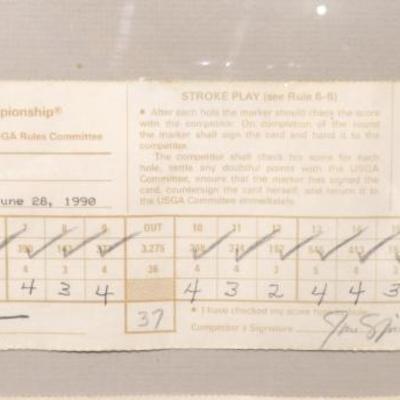 mpionship®
GA Rules Committee
une 28, 1990
STROKE PLAY (see Rule 6-6)
• After each hole the marker should check the score
with the competitor. On completion of the round
the marker shall sign the card and hand it to the
competitor.
The competitor shall check his score for each
hole, settle any doubtful points with the USGA
Committee, ensure that the marker has signed the
card, countersign the card herself, and return it to
the USGA Committee immediately.
8 9 OUT 10 11 12 13 14
3,275
4 3 4 36 4 4 3 5 4
4 3 4 4 3 2 4 4 3
37
• I have checked my score
Competitor's Signature